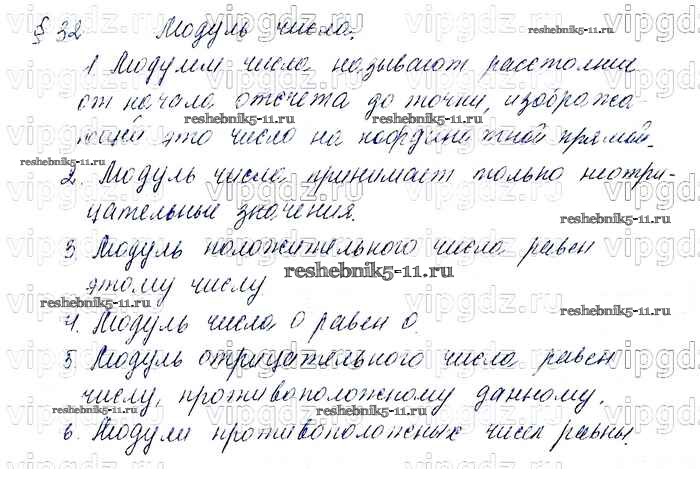 § 32 Модуль числа.
1 Модулем числа называют расстояние
от начала отсчёта до точки, изобража-
ющей это число на координатной прямой.
2. Модуль числа принимает только неотри-
цательные значения.
3. Модуль положительного числа равен
этому числу
4. Модуль числа 0 равен 0.
5. Модуль отрицательного числа равен
числу, противоположному данному.
6. Модули противоположных чисел равны.
vipgdz.ru
reshebnik5-11.ru